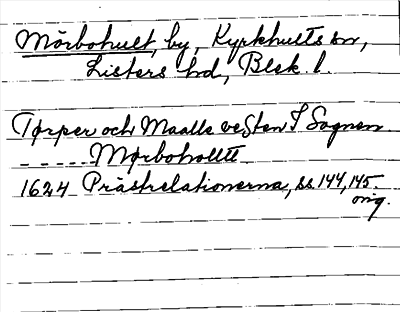 Mörbohult, by, Kyrkhults sn,
Listers hd, Blek. l.
Tørper och Maalle vesten I Sognen
- - - - - Mørboholltt
1624 Prästrelationerna, ss. 144, 145.
orig.